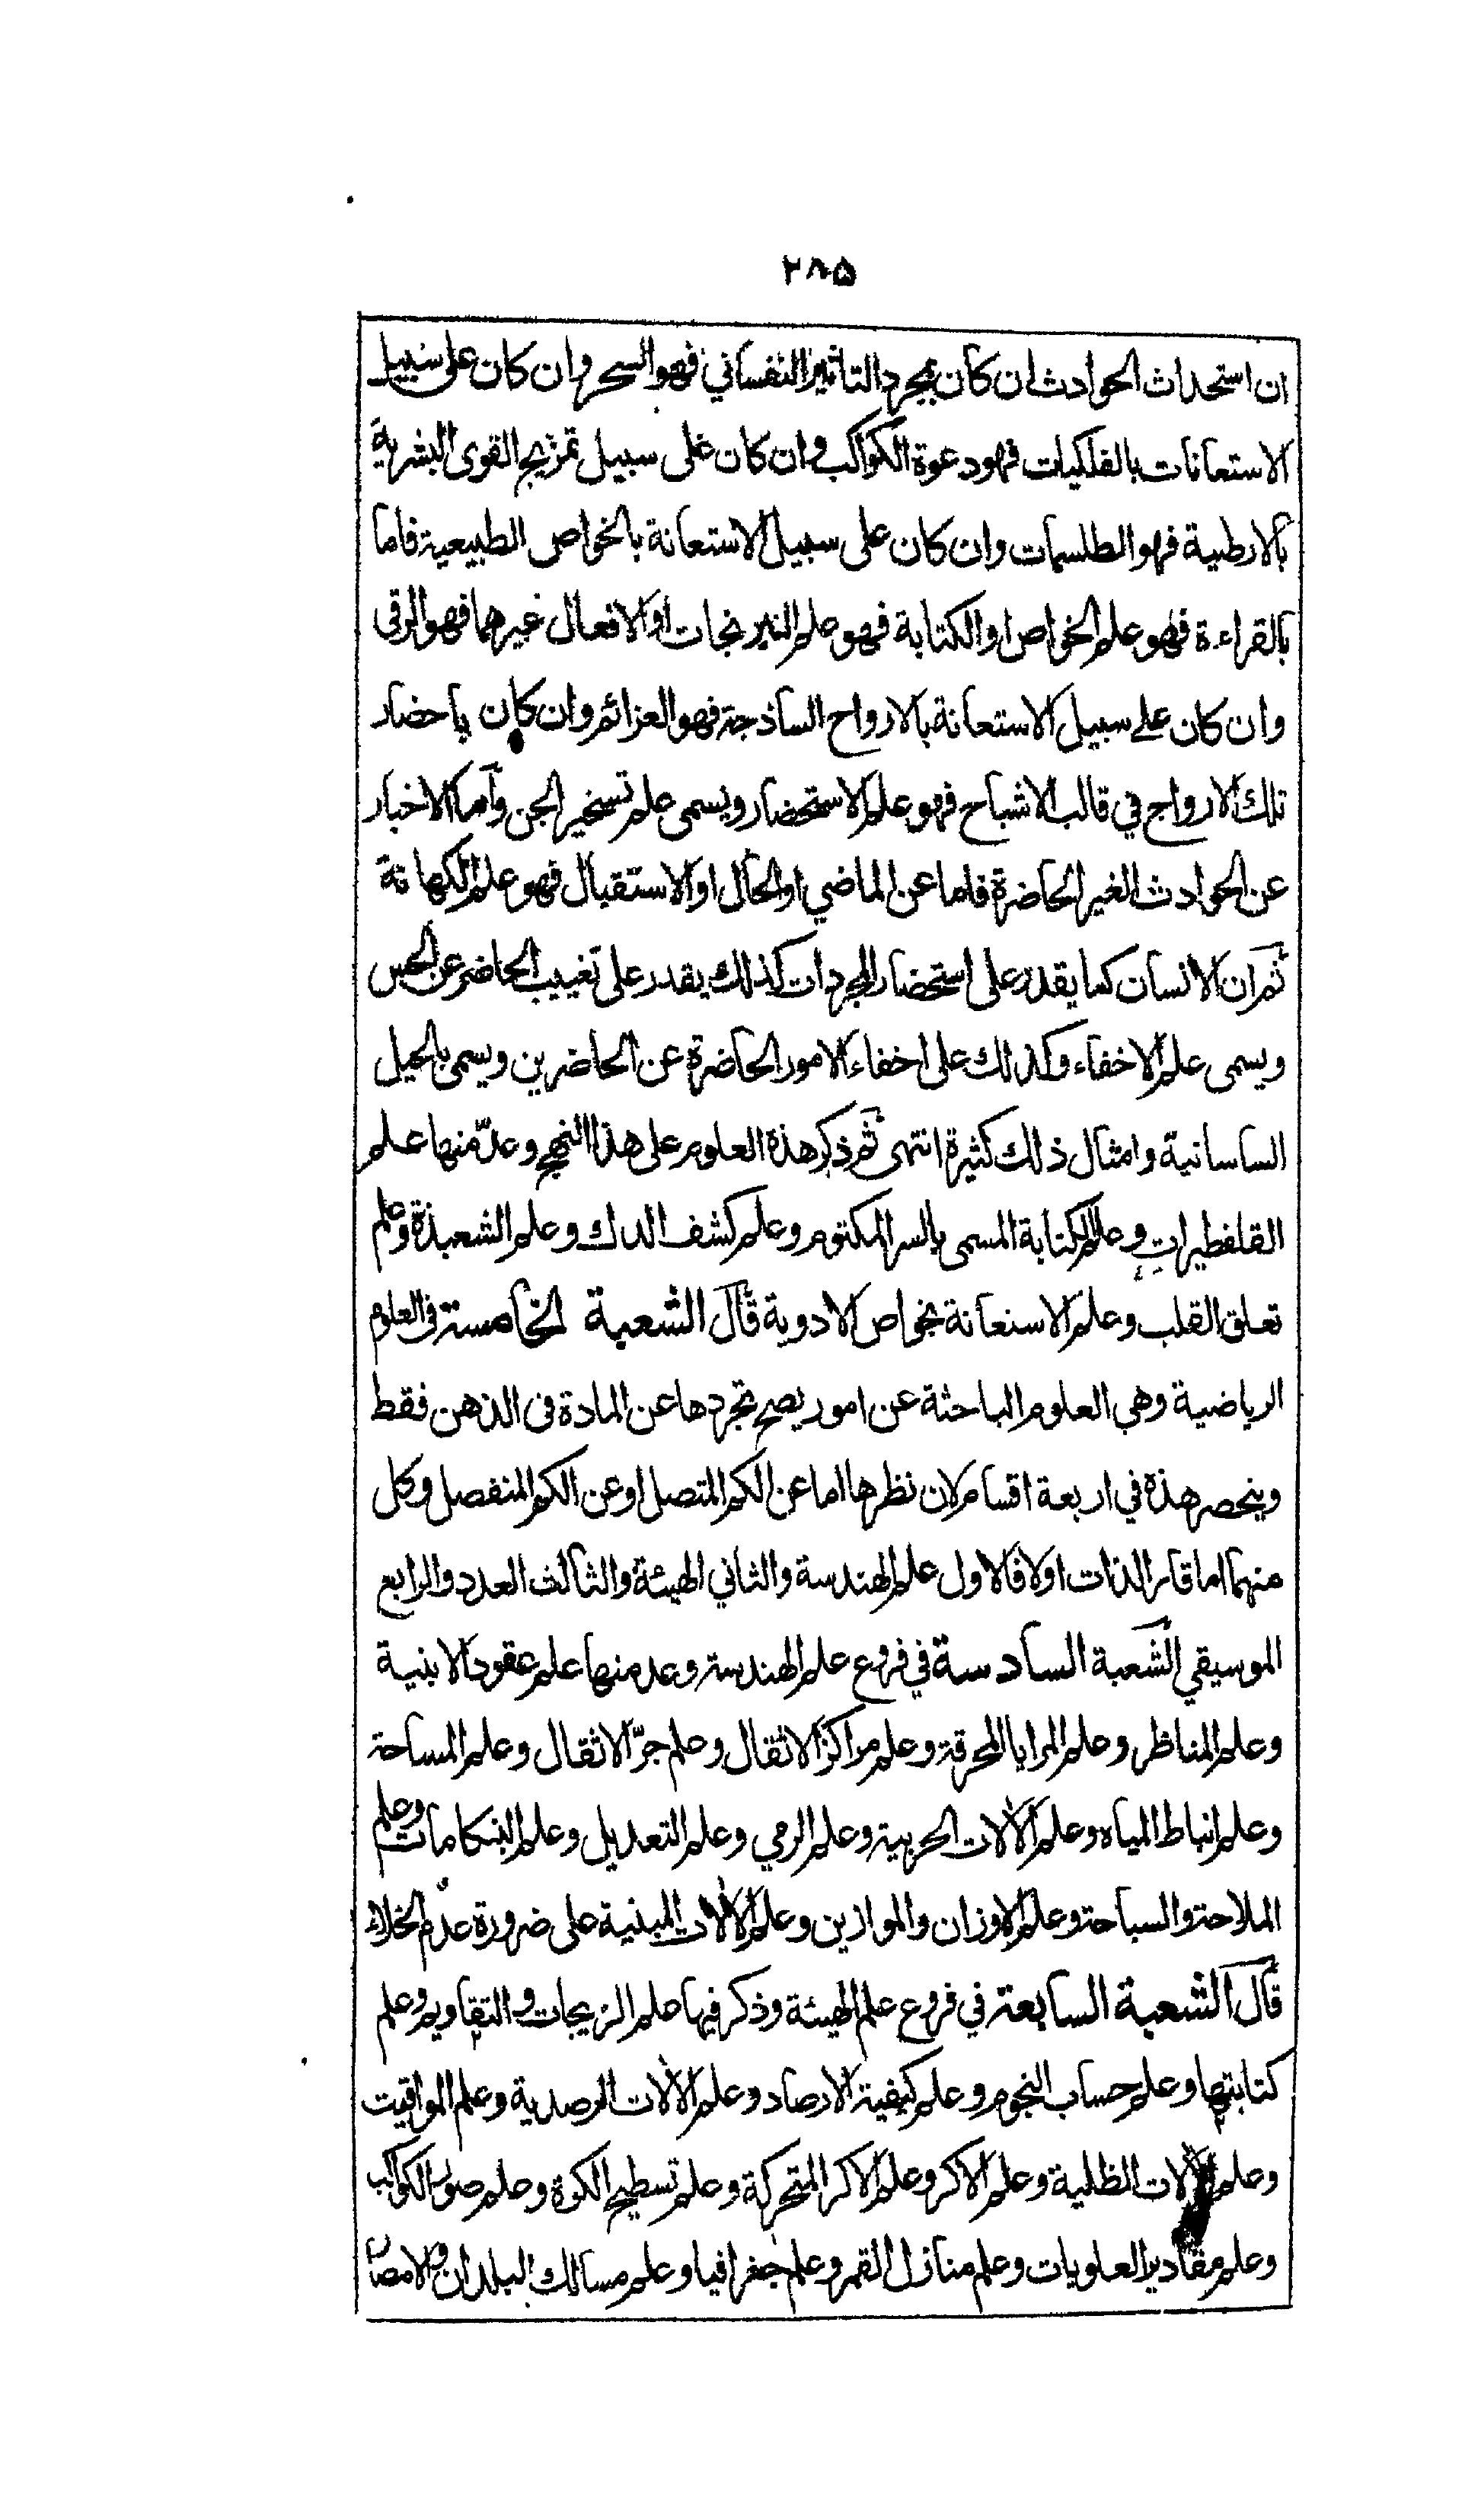 ٢٨٥
ان استحداث الحوادث ان كان بمجرد التاثير النفساني فهو السحر وان كان على سبيل
الاستعانات بالفلكيات فهو دعوة الكواكب وان كان على سبيل تمزيج القوى البشرية
بالارطبية فهو الطلسمات وان كان على سبيل الاستعانة بالخواص الطبيعية فاما
بالقراءة فهو علم الخواص او الكتابة فهو علم النيرنجات او الافعال غيرهما فهو الرقى
وان كان على سبيل الاستعانة بالارواح الساذجة فهو العزائم وان كان باحضار
تلك الارواح في قالب الاشباح فهو علم الاستحضار ويسمى علم تسخير الجن وأما الاخبار
عن الحوادث الغير الحاضرة فاما عن الماضي او الحال او الاستقبال فهو علم الكهانة
ثم ان الانسان كما يقدر على استحضار المجردات كذلك يقدر على تغييب الحاضر عن الحس
ويسمى علم الاخفاء وكذلك على اخفاء الامور الحاضرة عن الحاضرين ويسمى بالحيل
الساسانية وامثال ذلك كثيرة انتهى ثم ذكر هذة العلوم على هذا النهج وعدّ منها علم
القلفطيرات وعلم الكتابة المسمى بالسر المكتوم وعلم كشف الدك وعلم الشعبذة وعلم
تعلق القلب وعلم الاستعانة بخواص الادوية قال الشعبة الخامسة في العلوم
الرياضية وهي العلوم الباحثة عن امور يصح تجردها عن المادة في الذهن فقط
وينحصر هذة في اربعة اقسام لان نظرها اما عن الكم المتصل او عن الكم المنفصل وكل
منهما اما قار الذات اولا فالاول علم الهندسة والثاني الهيئة والثالث العدد والرابع
الموسيقي الشعبة السادسة في فروع علم الهندسة وعد منها علم عقود الابنية
وعلم المناظر وعلم المرايا المحرقة وعلم مراكز الاثقال وعلم جرّ الاثقال وعلم المساحة
وعلم انباط المياه وعلم الآلات الحربية وعلم الرمي وعلم التعديل وعلم البنكامات وعلم
الملاحة والسباحة وعلم الاوزان والموازين وعلم الآلات المبنية على ضرورة عدم الخلاء
قال الشعبة السابعة في فروع علم الهيئة وذكر فيها علم الزيجات والتقاويم وعلم
كتابتها وعلم حساب النجوم وعلم كيفية الارصاد وعلم الآلات الرصدية وعلم المواقيت
وعلم الآلات الظلية وعلم الاكر وعلم الاكر المتحركة وعلم تسطيح الكرة وعلم صور الكواكب
وعلم مقادير العلويات وعلم منازل القمر وعلم جغرافيا وعلم مسالك البلدان والامصار